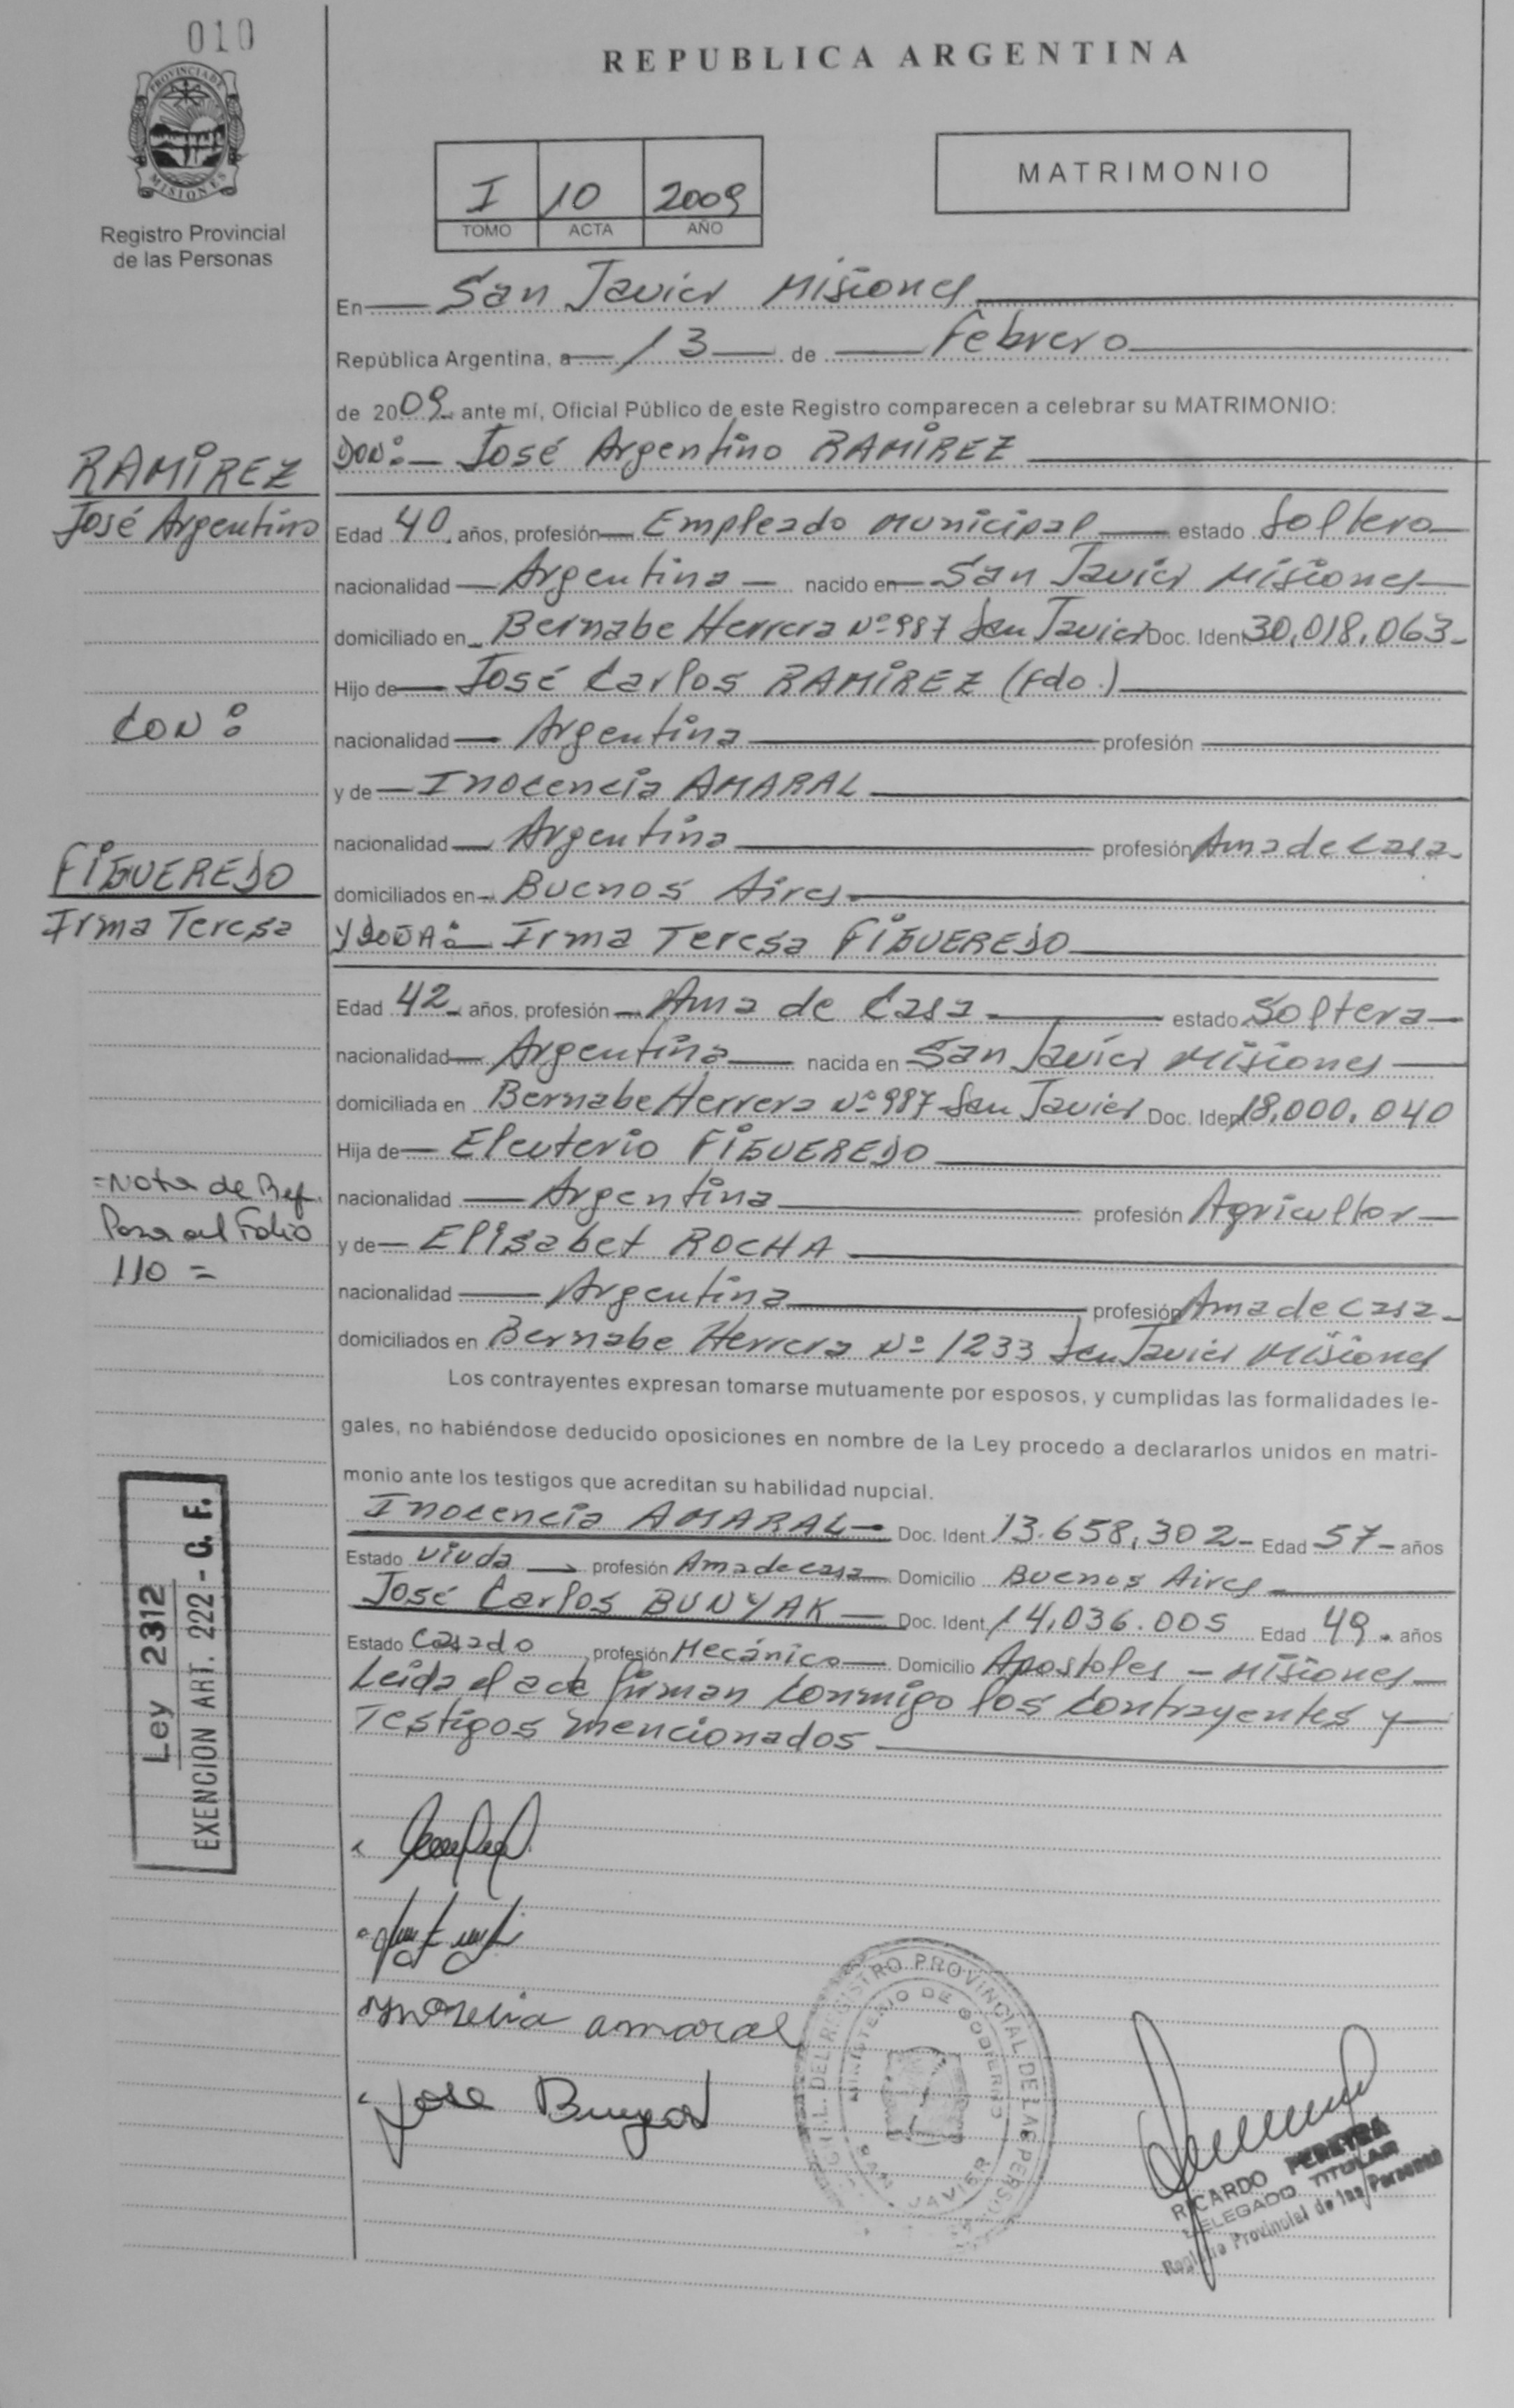 010
REPUBLICA ARGENTINA
PROVINCIA DE MISIONES
Registro Provincial
de las Personas
I 10 2009
TOMO ACTA AÑO
MATRIMONIO
En San Javier Misiones
República Argentina, a 13 de Febrero
de 2009 ante mí, Oficial Público de este Registro comparecen a celebrar su MATRIMONIO:
RAMIREZ
José Argentino
CON:
FIGUEREDO
Irma Teresa
DON: José Argentino RAMIREZ
Edad 40 años, profesión Empleado Municipal estado Soltero
nacionalidad Argentina nacido en San Javier Misiones
domiciliado en Bernabe Herrera Nº 987 San Javier Doc. Ident 30,018,063
Hijo de José Carlos RAMIREZ (Fdo.)
nacionalidad Argentina profesión
y de Inocencia AMARAL
nacionalidad Argentina profesión Ama de Casa
domiciliados en Buenos Aires
Y DOÑA: Irma Teresa FIGUEREDO
Edad 42 años, profesión Ama de Casa estado Soltera
nacionalidad Argentina nacida en San Javier Misiones
domiciliada en Bernabe Herrera Nº 987 San Javier Doc. Ident 18,000,040
Hija de Eleuterio FIGUEREDO
nacionalidad Argentina profesión Agricultor
y de Elisabet ROCHA
nacionalidad Argentina profesión Ama de Casa
domiciliados en Bernabe Herrera Nº 1233 San Javier Misiones
=Nota de Ref.
Pasa al Folio
110=
Los contrayentes expresan tomarse mutuamente por esposos, y cumplidas las formalidades le-
gales, no habiéndose deducido oposiciones en nombre de la Ley procedo a declararlos unidos en matri-
monio ante los testigos que acreditan su habilidad nupcial.
Inocencia AMARAL Doc. Ident 13.658,302 Edad 57 años
Estado Viuda profesión Ama de casa Domicilio Buenos Aires
José Carlos BUNYAK Doc. Ident 14,036.005 Edad 49 años
Estado Casado profesión Mecánico Domicilio Apostoles - Misiones
Leida el acta firman conmigo los contrayentes y
Testigos mencionados
Ley 2312
EXENCION ART. 222 - C. F.
amaral
Jose
REGISTRO PROVINCIAL DE LAS PERSONAS
MINISTERIO DE GOBIERNO
SAN JAVIER
RICARDO PEREYRA
DELEGADO TITULAR
Registro Provincial de las Personas